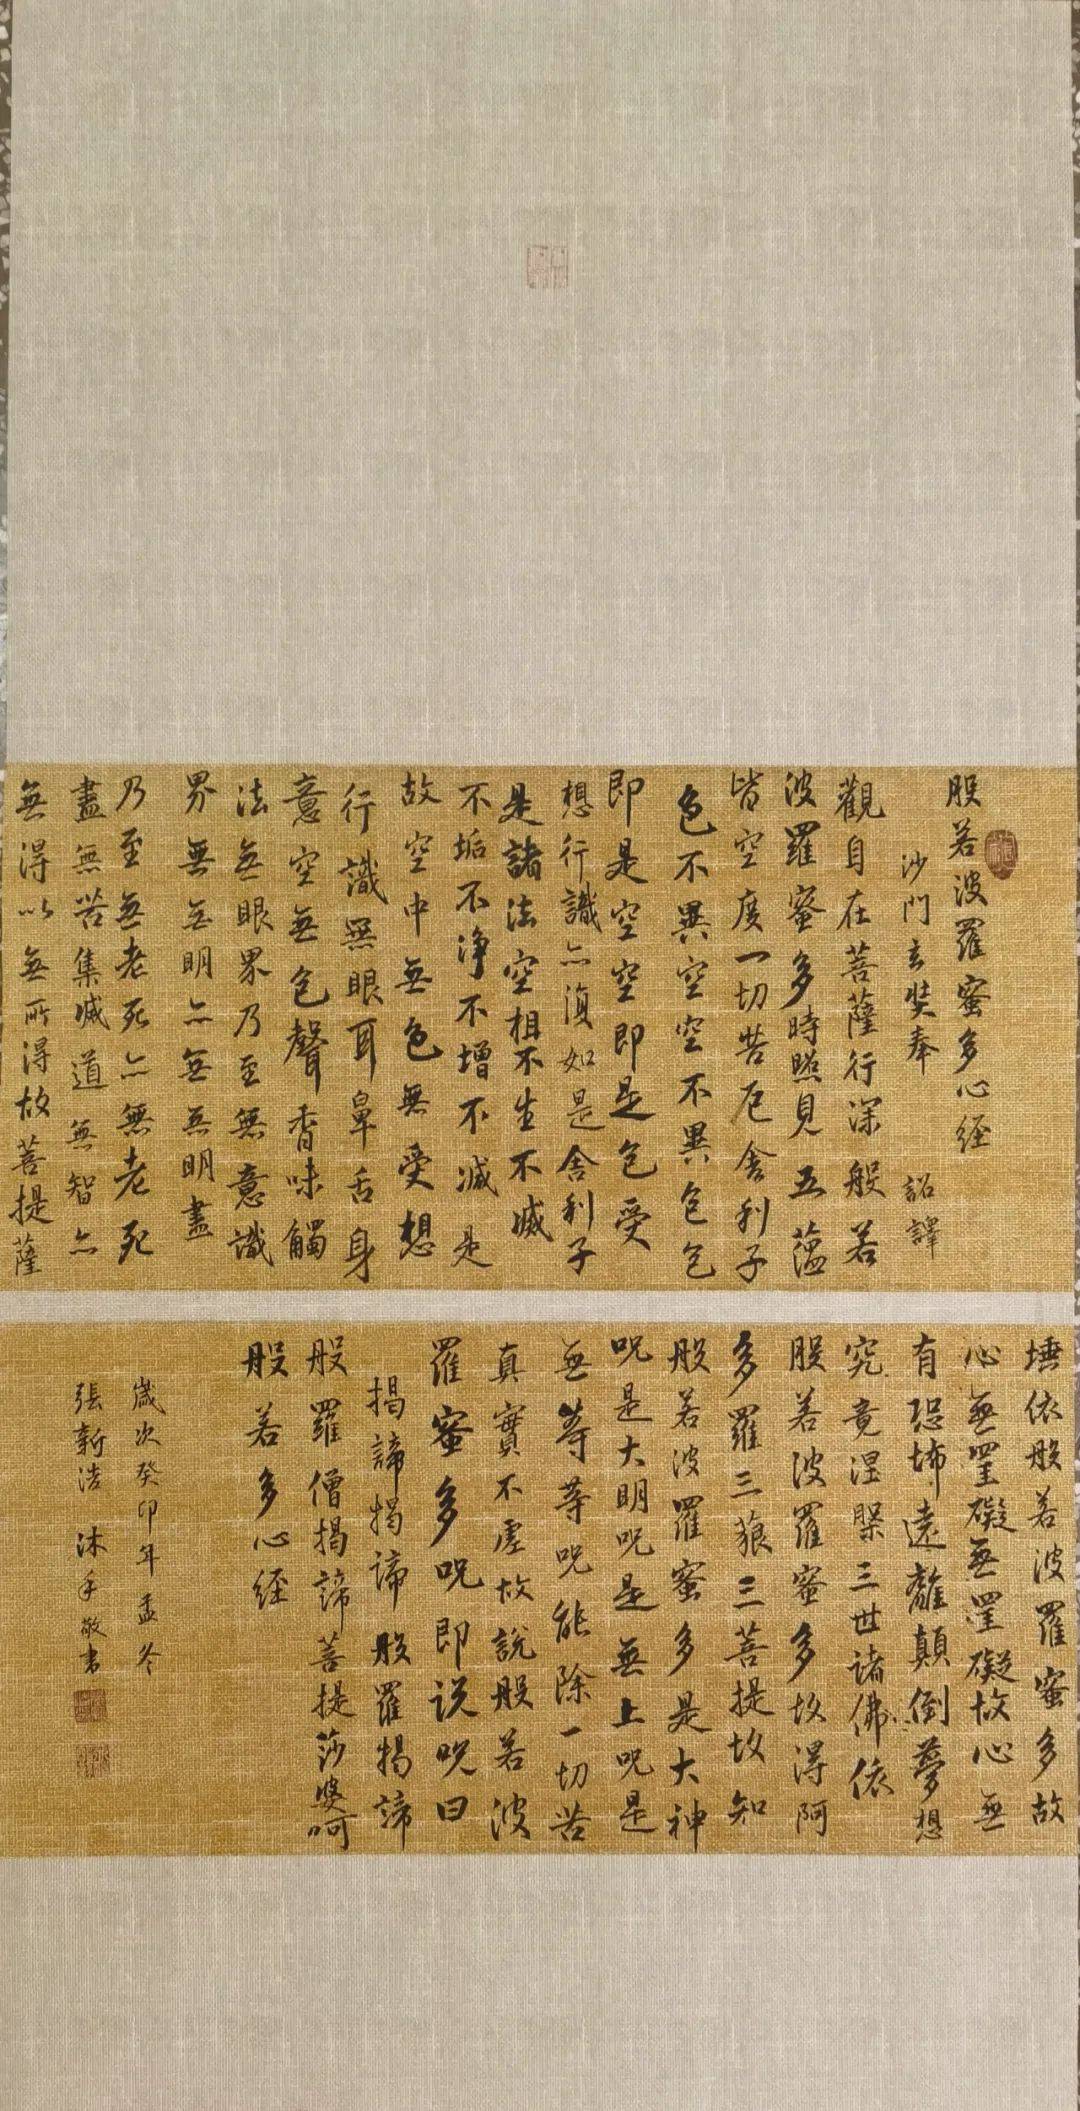 般若波羅蜜多心経
沙門玄奘奉 詔譯
觀自在菩薩行深般若
波羅蜜多時照見五蕴
皆空度一切苦厄舍利子
色不異空空不異色色
即是空空即是色受
想行識亦復如是舍利子
是諸法空相不生不滅
不垢不净不增不減是
故空中無色無受想
行識無眼耳鼻舌身
意空無色聲香味觸
法無眼界乃至無意識
界無無明亦無無明盡
乃至無老死亦無老死
盡無苦集滅道無智亦
無得以無所得故菩提薩
埵依般若波羅蜜多故
心無罣礙無罣礙故心無
有恐怖遠離顛倒夢想
究竟涅槃三世諸佛依
般若波羅蜜多故得阿
多羅三藐三菩提故知
般若波羅蜜多是大神
呪是大明呪是無上呪是
無等等呪能除一切苦
真實不虛故說般若波
羅蜜多呪即说呪曰
揭諦揭諦般羅揭諦
般羅僧揭諦菩提莎婆呵
般若多心経
歲次癸卯年孟冬
張新浩沐手敬書